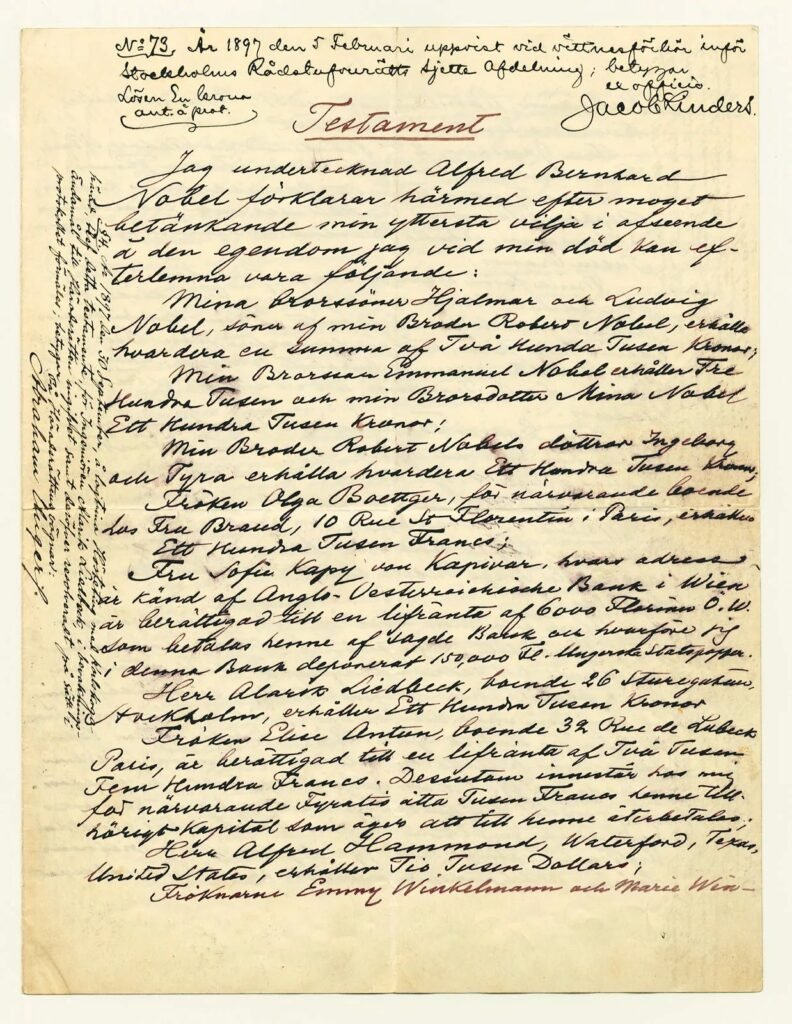 No 73. År 1897 den 5 Februari uppvist vid vittnesförhör inför
Stockholms Rådstufvurätts sjette Afdelning; betygar
ex officio.
Lösen En krona
ant. å prot.
Testament
Jag undertecknad Alfred Bernhard
Nobel förklarar härmed efter moget
betänkande min yttersta vilja i afseende
å den egendom jag vid min död kan ef-
terlemna vara följande:
Mina brorssöner Hjalmar och Ludvig
Nobel, söner af min Broder Robert Nobel, erhålla
hvardera en summa af Två Hundra Tusen Kronor;
Min Brorsson Emmanuel Nobel erhåller Tre
Hundra Tusen och min Brorsdotter Mina Nobel
Ett Hundra Tusen Kronor;
Min Broder Robert Nobels döttrar Ingeborg
och Tyra erhålla hvardera Ett Hundra Tusen Kronor;
Fröken Olga Boettger, för närvarande boende
hos Fru Brand, 10 Rue St Florentin i Paris, erhåller
Ett Hundra Tusen Francs;
Fru Sofie Kapy von Kapivar, hvars adress
är känd af Anglo-Oesterreichische Bank i Wien
är berättigad till en lifränta af 6000 Florins Ö.W.
som betalas henne af sagde Bank och hvarföre jag
i denna Bank deponerat 150,000 Fl. i Ungerska Statspapper.
Herr Alarik Liedbeck, boende 26 Sturegatan,
Stockholm, erhåller Ett Hundra Tusen Kronor
Fröken Elise Antun, boende 32 Rue de Lubeck
Paris, är berättigad till en lifränta af Två Tusen
Fem Hundra Francs. Dessutom innestår hos mig
för närvarande Fyratio åtta Tusen Francs henne till-
hörigt Kapital som äger att till henne återbetalas;
Herr Alfred Hammond, Waterford, Texas,
United States, erhåller Tio Tusen Dollars;
Fröknarne Emmy Winkelmann och Marie Win-